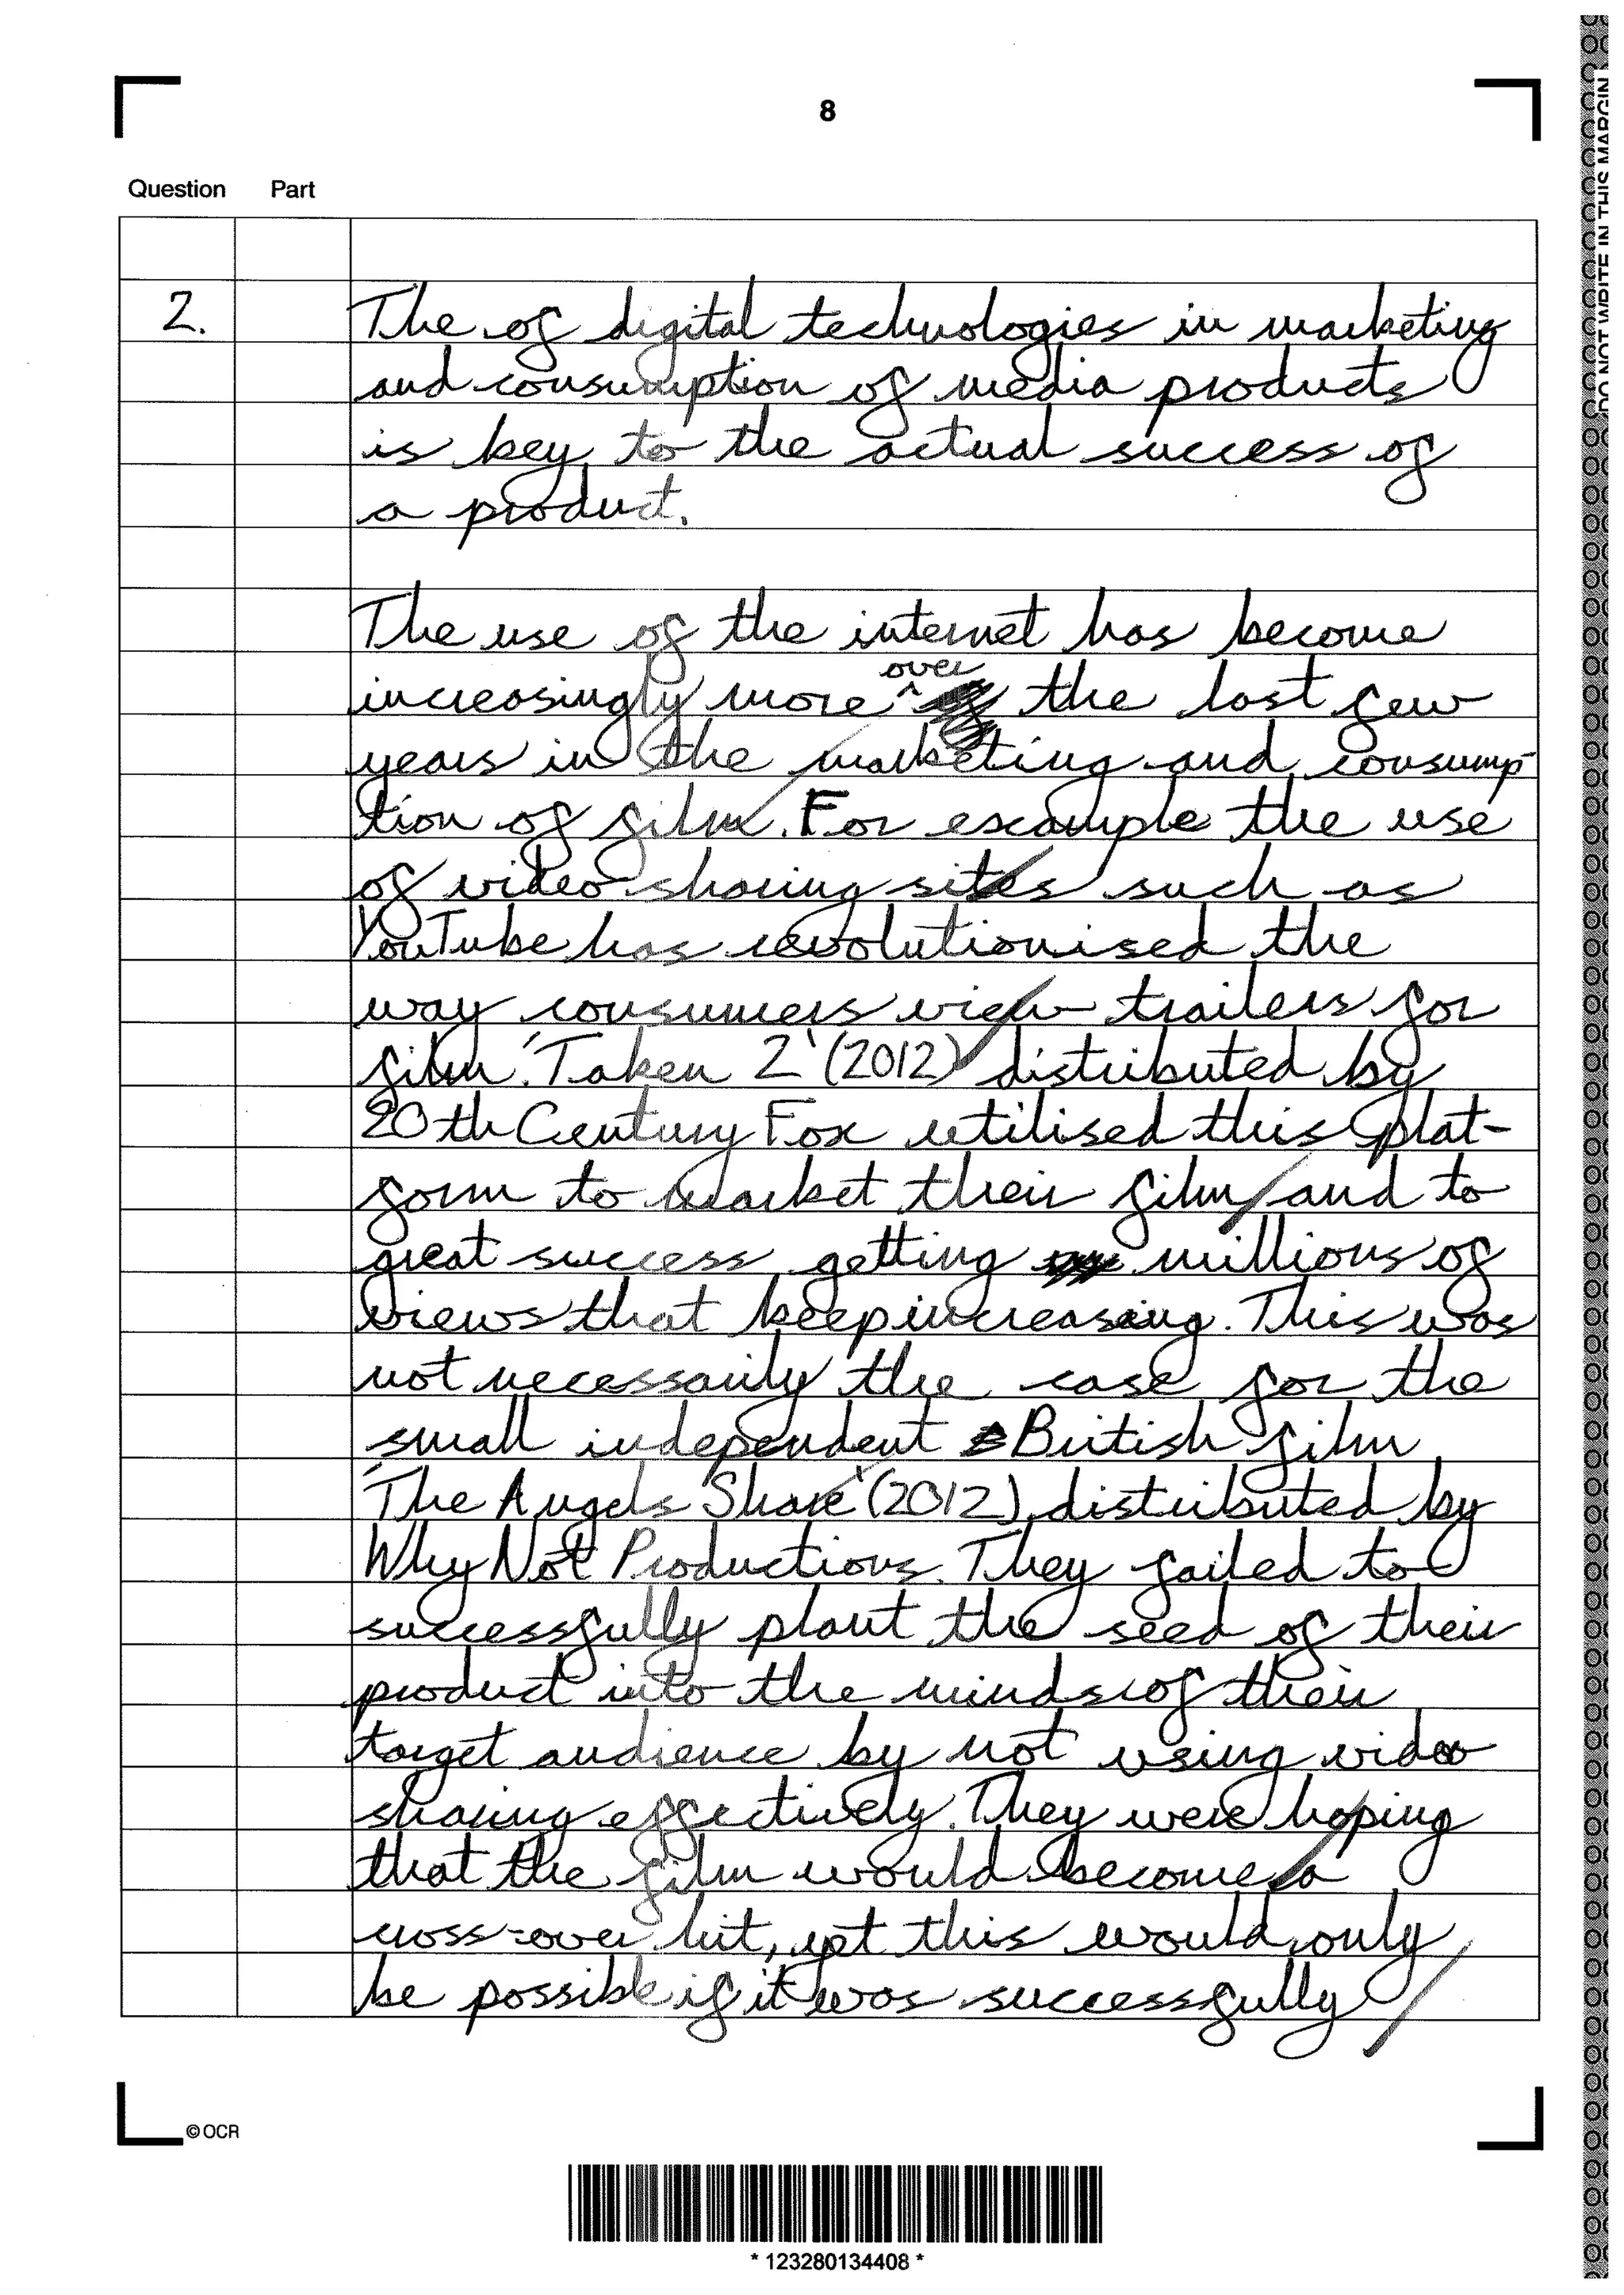 8
Question Part
2. The of digital technologies in marketing
and consumption of media products
is key to the actual success of
a product.
The use of the internet has become
over
increasingly more the last few
years in the marketing and consump-
tion of film. For example the use
of video sharing sites such as
YouTube has revolutionised the
way consumers view trailers for
film. 'Taken 2' (2012) distributed by
20th Century Fox utilised this plat-
form to market their film and to
great success getting millions of
views that keep increasing. This was
not necessarily the case for the
small independent British film
'The Angels' Share' (2012), distributed by
Why Not Productions. They failed to
successfully plant the seed of their
product into the minds of their
target audience by not using video
sharing effectively. They were hoping
that the film would become a
cross-over hit, yet this would only
be possible if it was successfully
© OCR
* 123280134408 *
DO NOT WRITE IN THIS MARGIN